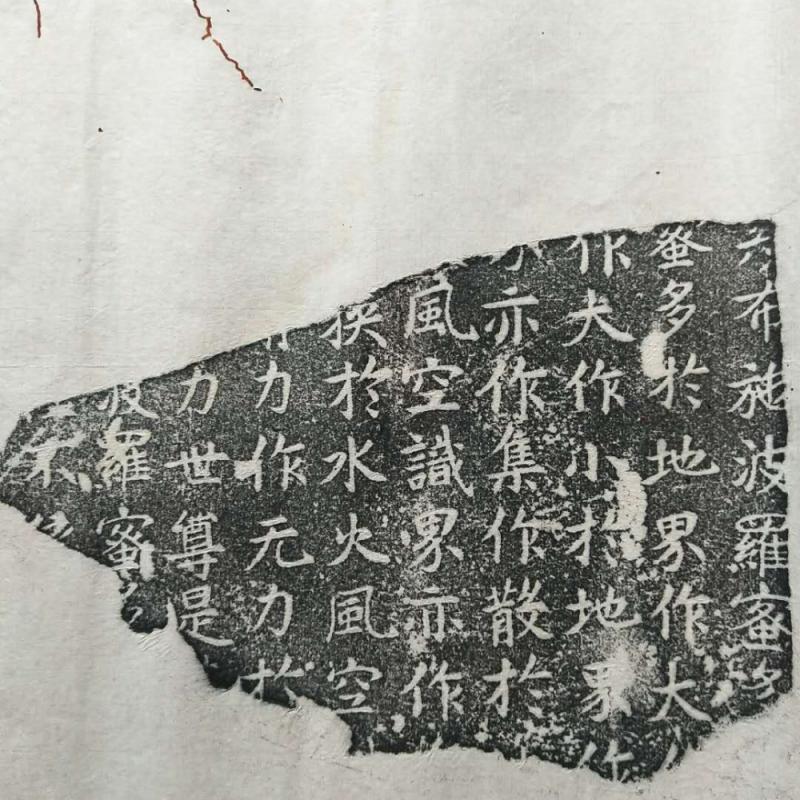 布施波羅蜜多
蜜多於地界作大
作大作小於地界作
亦作集作散於
風空識界亦作
揆於水火風空
力作无力於
力世尊是
波羅蜜多
不